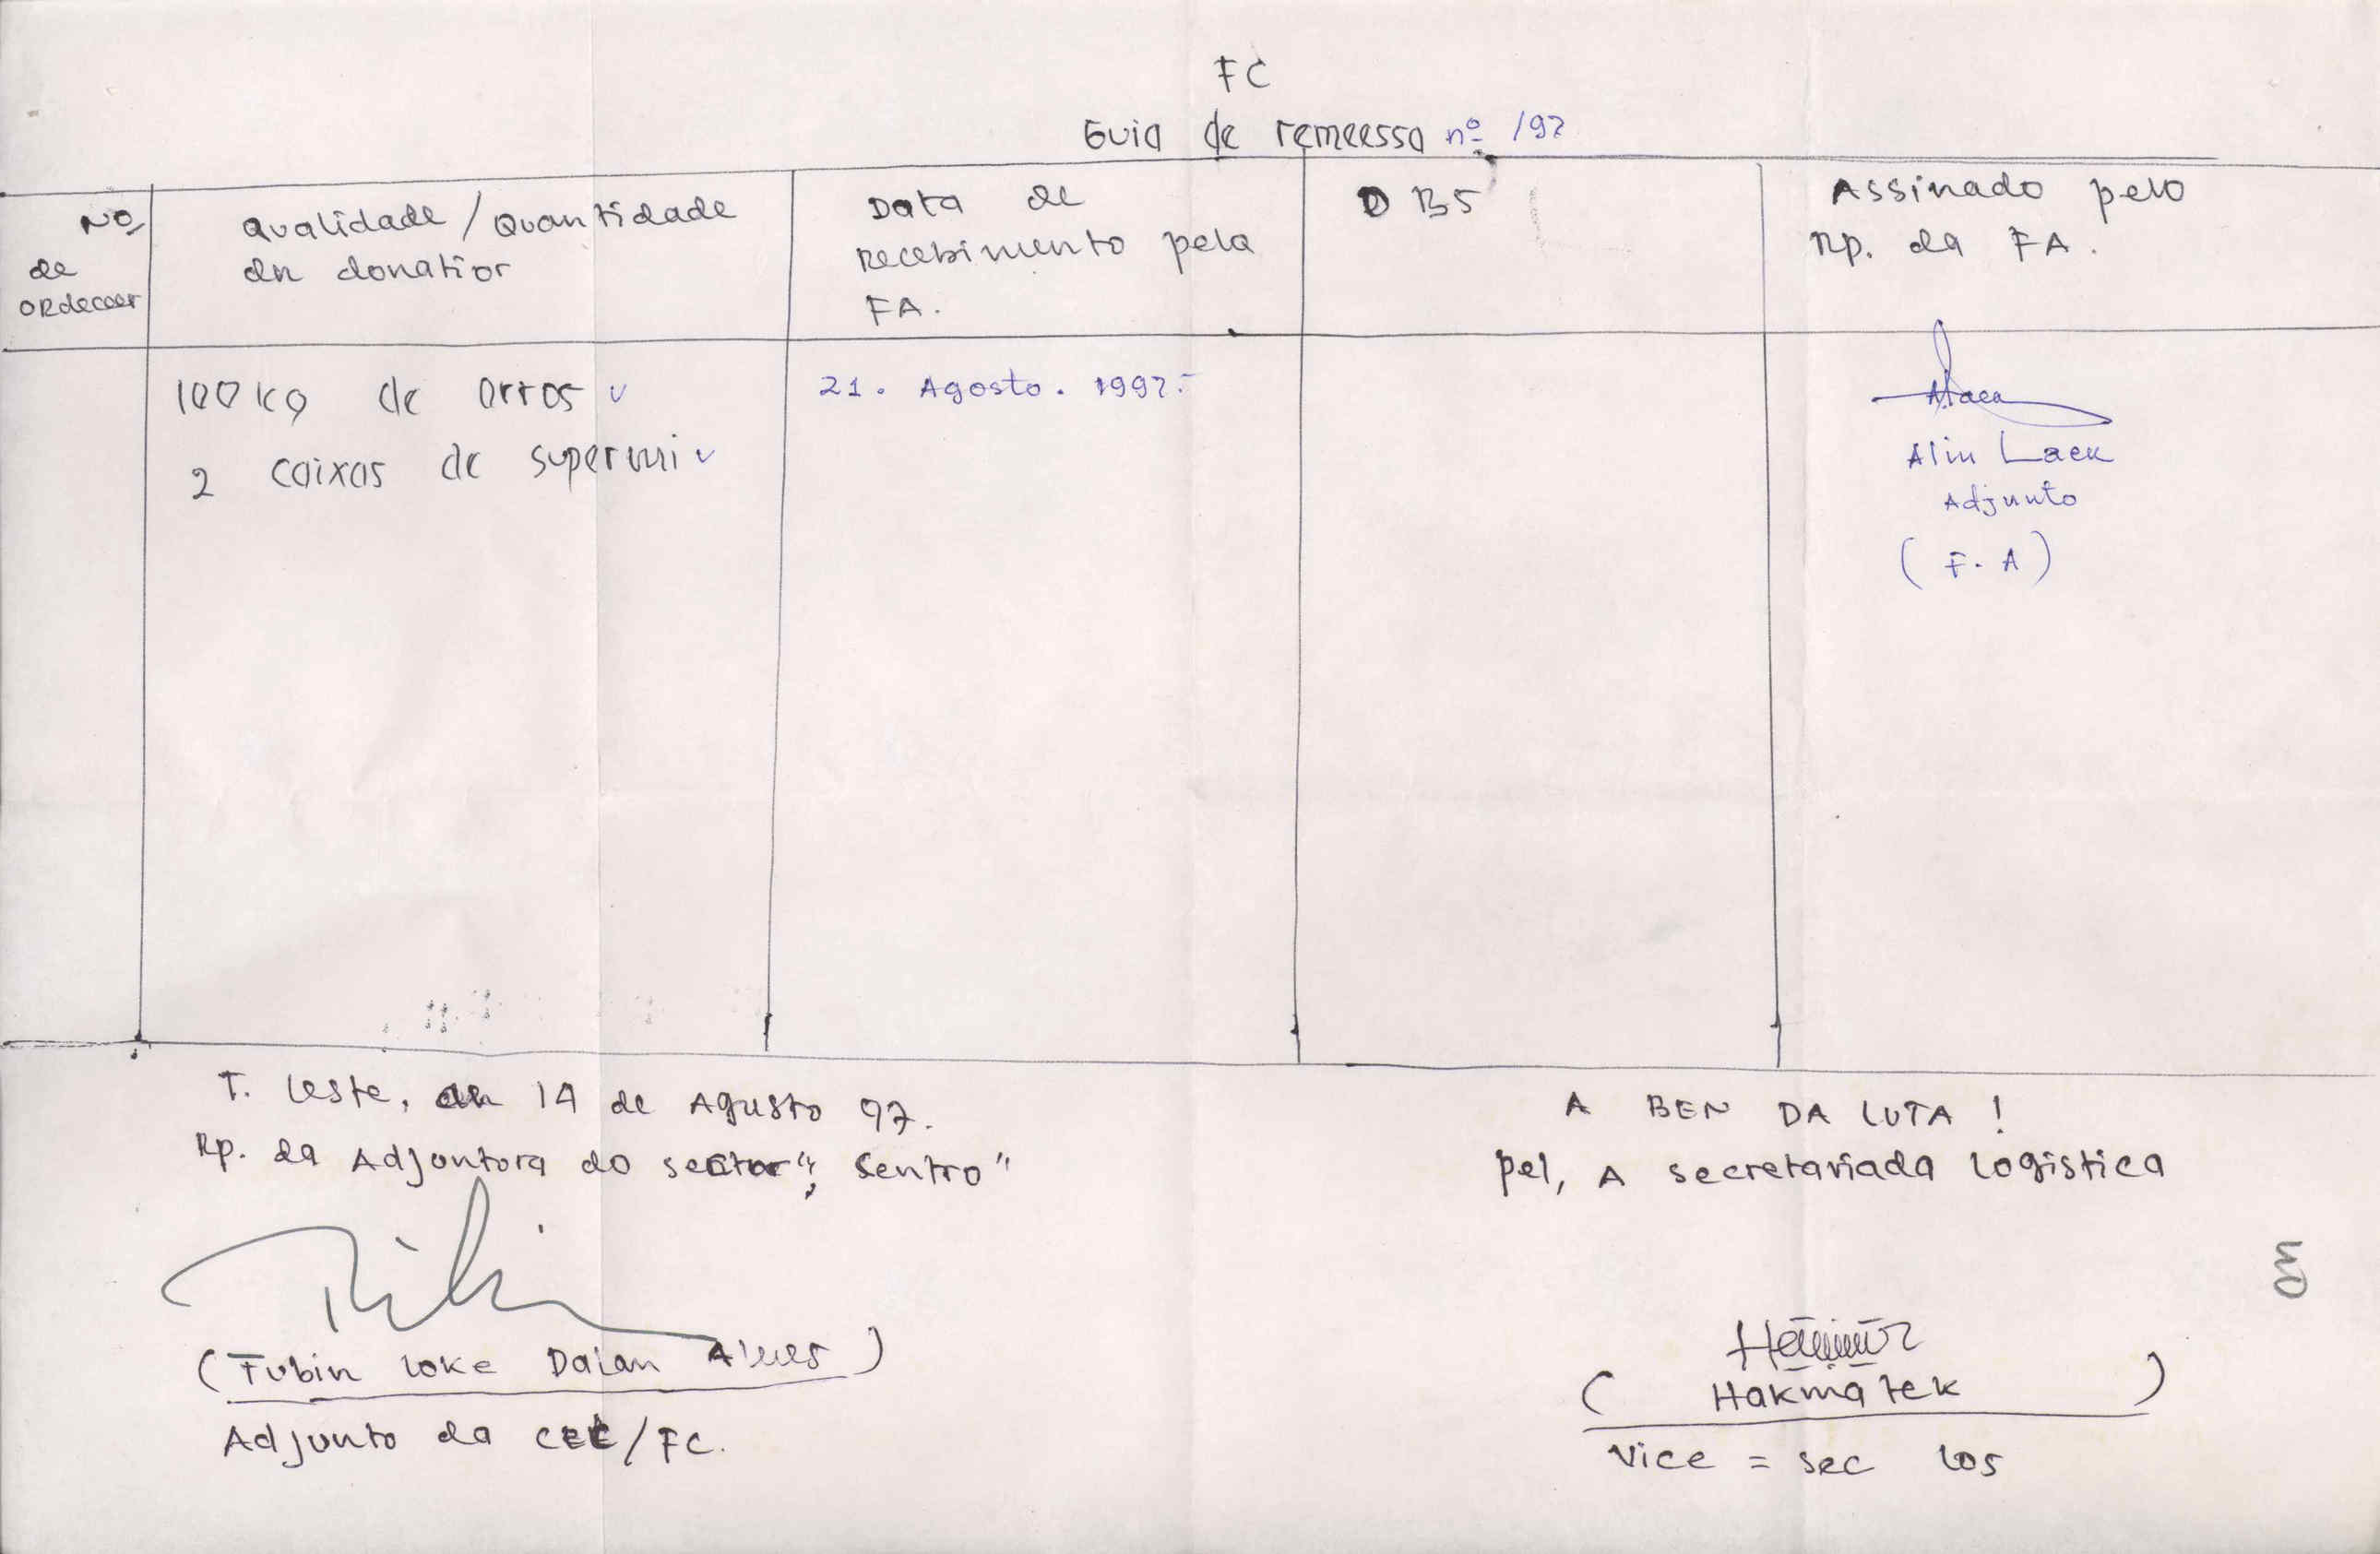 FC
Guia de remeessa nº /97
No,
de
ORdecoer
Qualidade / Quantidade
dn donatior
Data de
recebimento pela
FA.
OB5
Assinado pelo
Rp. da FA.
100 kg de arros v
2 caixas de supermi v
21. Agosto. 1997.-
Alin Laek
Adjunto
(F. A)
T. Leste, 14 de Agusto 97.
Rp. da Adjontora do sector "Sentro"
(Tubin Loke Dalan Alves)
Adjunto da CEL/FC.
A BEN DA LUTA !
pel, A secretariada logistica
(Hakmatek)
Vice = sec los